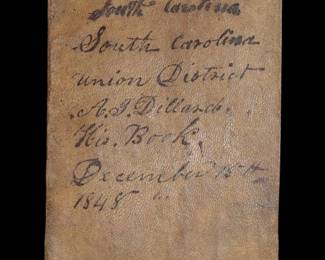 South Carolina
South Carolina
Union District
A. J. Dillard.
His. Book.
December 15th
1848